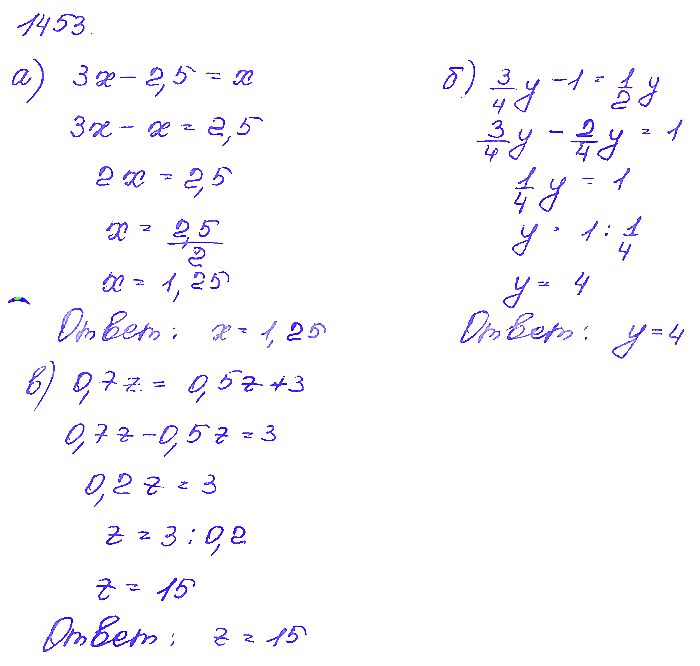 1453.
а) 3x - 2,5 = x
3x - x = 2,5
2x = 2,5
x = 2,5/2
x = 1,25
Ответ: x = 1,25
б) 3/4 y - 1 = 1/2 y
3/4 y - 2/4 y = 1
1/4 y = 1
y = 1 : 1/4
y = 4
Ответ: y = 4
в) 0,7z = 0,5z + 3
0,7z - 0,5z = 3
0,2z = 3
z = 3 : 0,2
z = 15
Ответ: z = 15